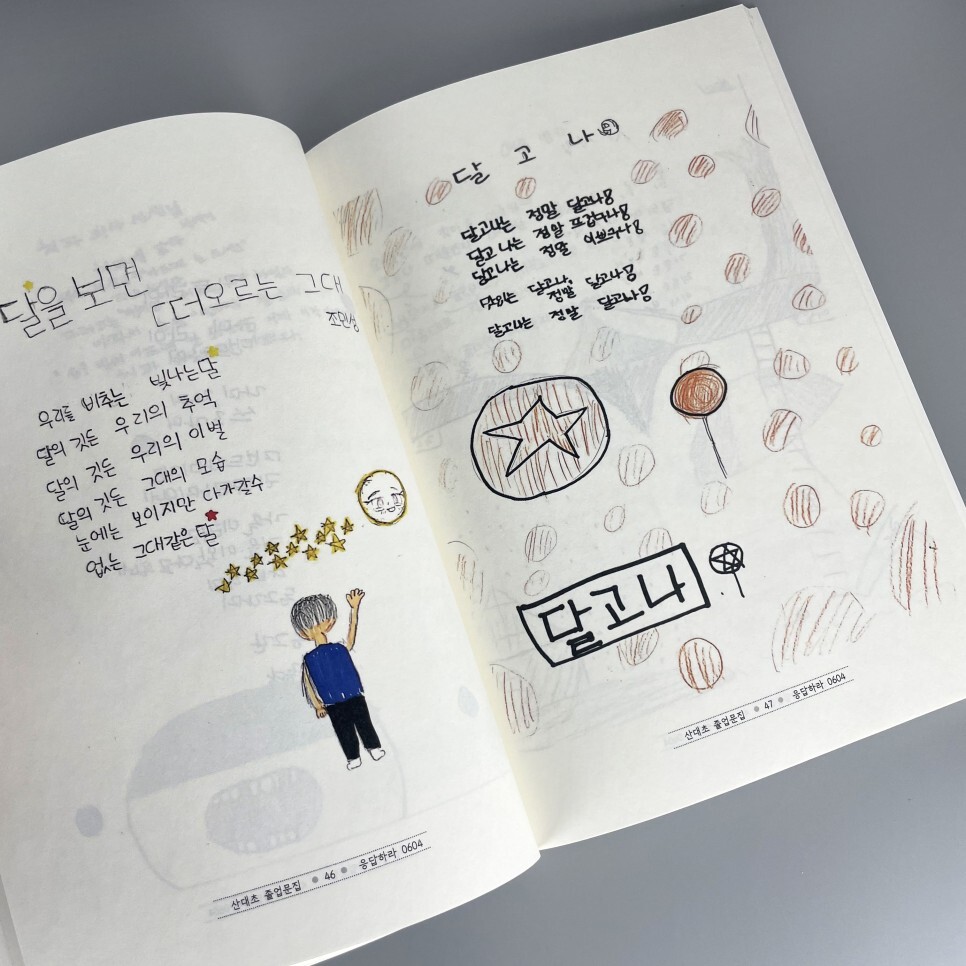 달을 보면
떠오르는 그대
조민성
우리를 비추는 빛나는 달
달의 깃든 우리의 추억
달의 깃든 우리의 이별
달의 깃든 그대의 모습
눈에는 보이지만 다가갈수
없는 그대같은 달
산대초 졸업문집 ● 46 ● 응답하라 0604
달 고 나
달고나는 정말 달고나!
달고나는 정말 뜨겁구나!
달고나는 정말 이쁘구나!
달고나, 정말 달고나!
달고나는 정말 달고나!
달고나
산대초 졸업문집 ● 47 ● 응답하라 0604